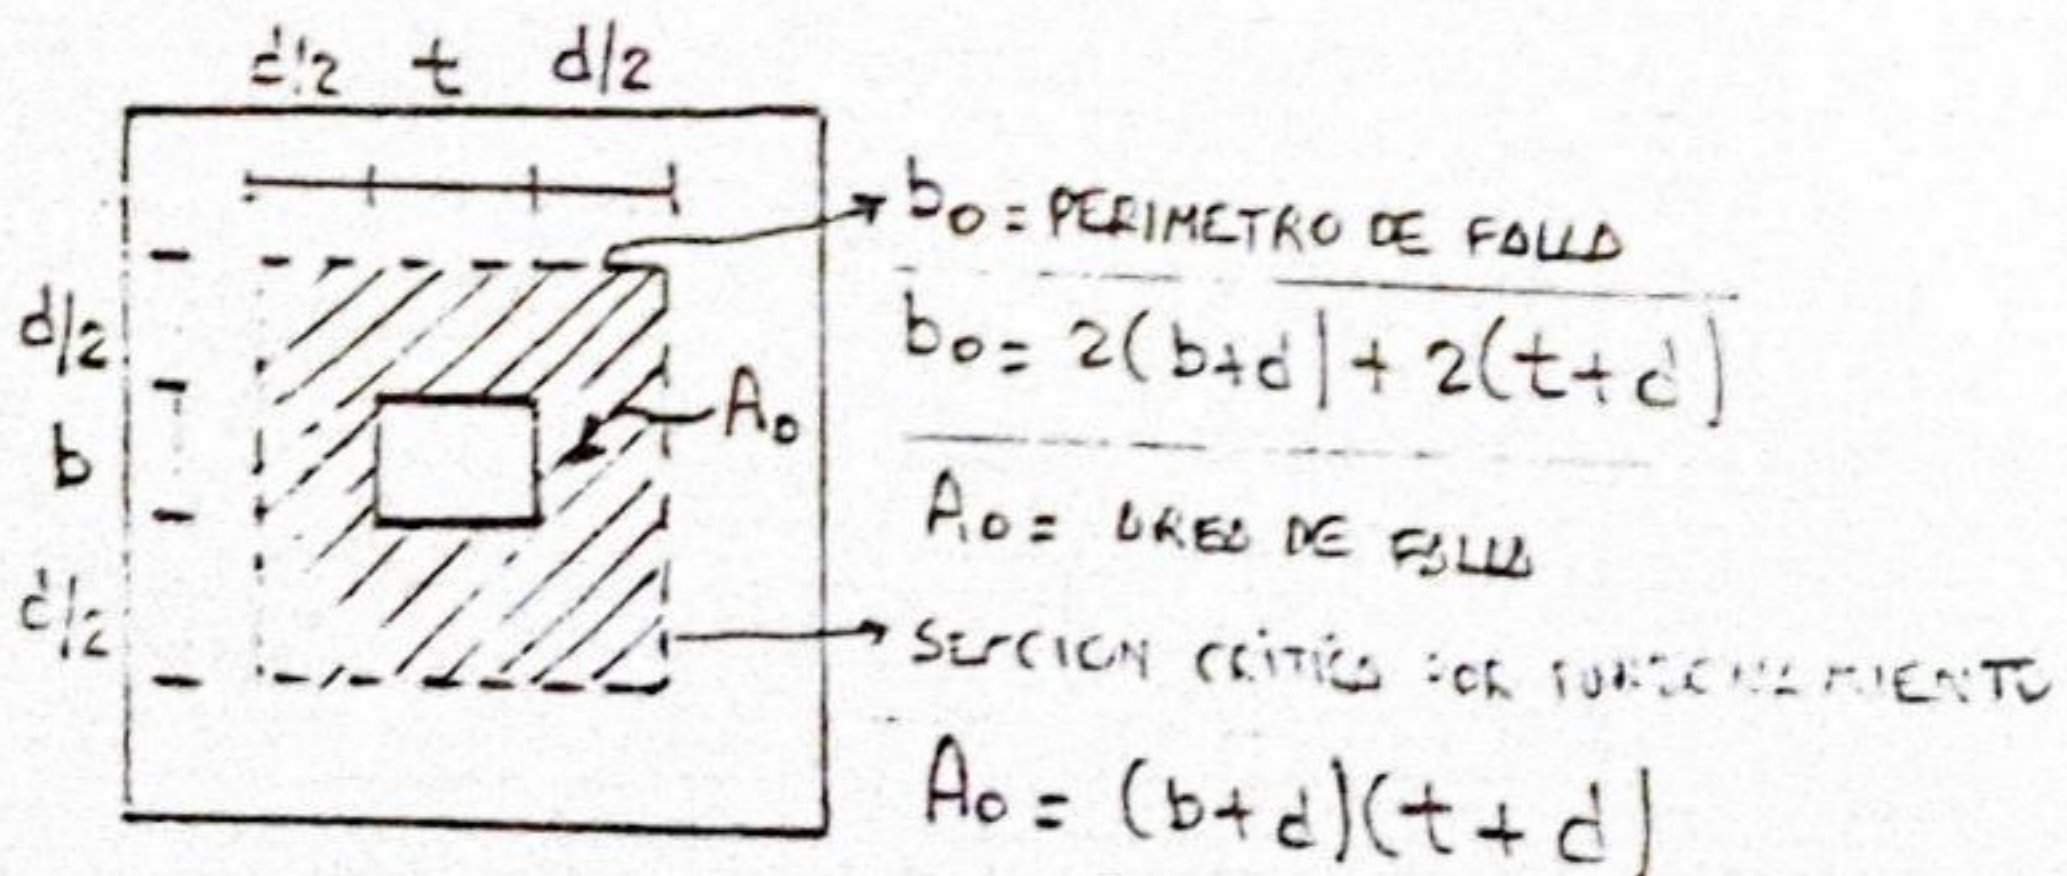 d/2 t d/2
d/2
b
d/2
A₀
b₀ = PERIMETRO DE FALLA
b₀ = 2(b+d) + 2(t+d)
A₀ = AREA DE FALLA
SECCION CRÍTICA POR PUNZONAMIENTO
A₀ = (b+d)(t+d)